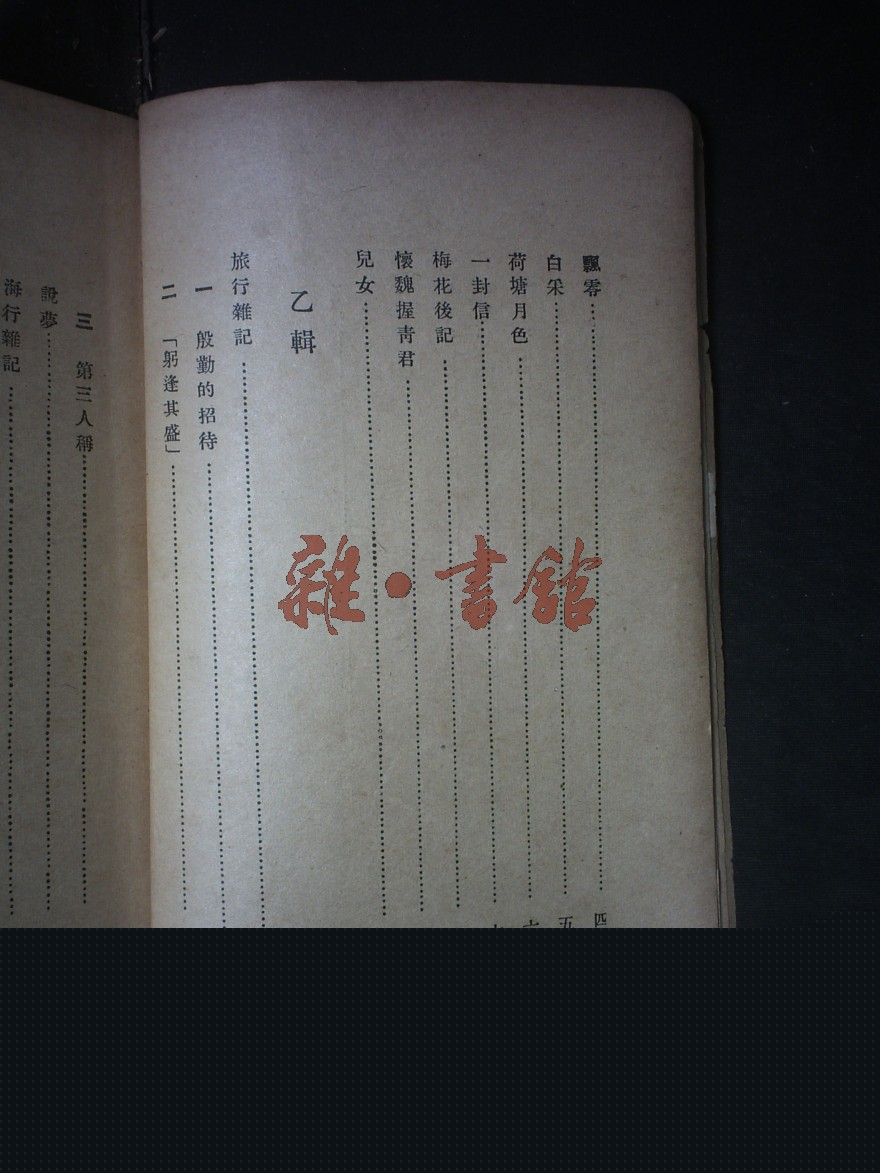 飄零……
白采……
荷塘月色……
一封信……
梅花後記……
懷魏握青君……
兒女……
乙輯
旅行雜記……
一 殷勤的招待……
二 「躬逢其盛」……
三 第三人稱……
說夢……
海行雜記……
四
五
雜·書館